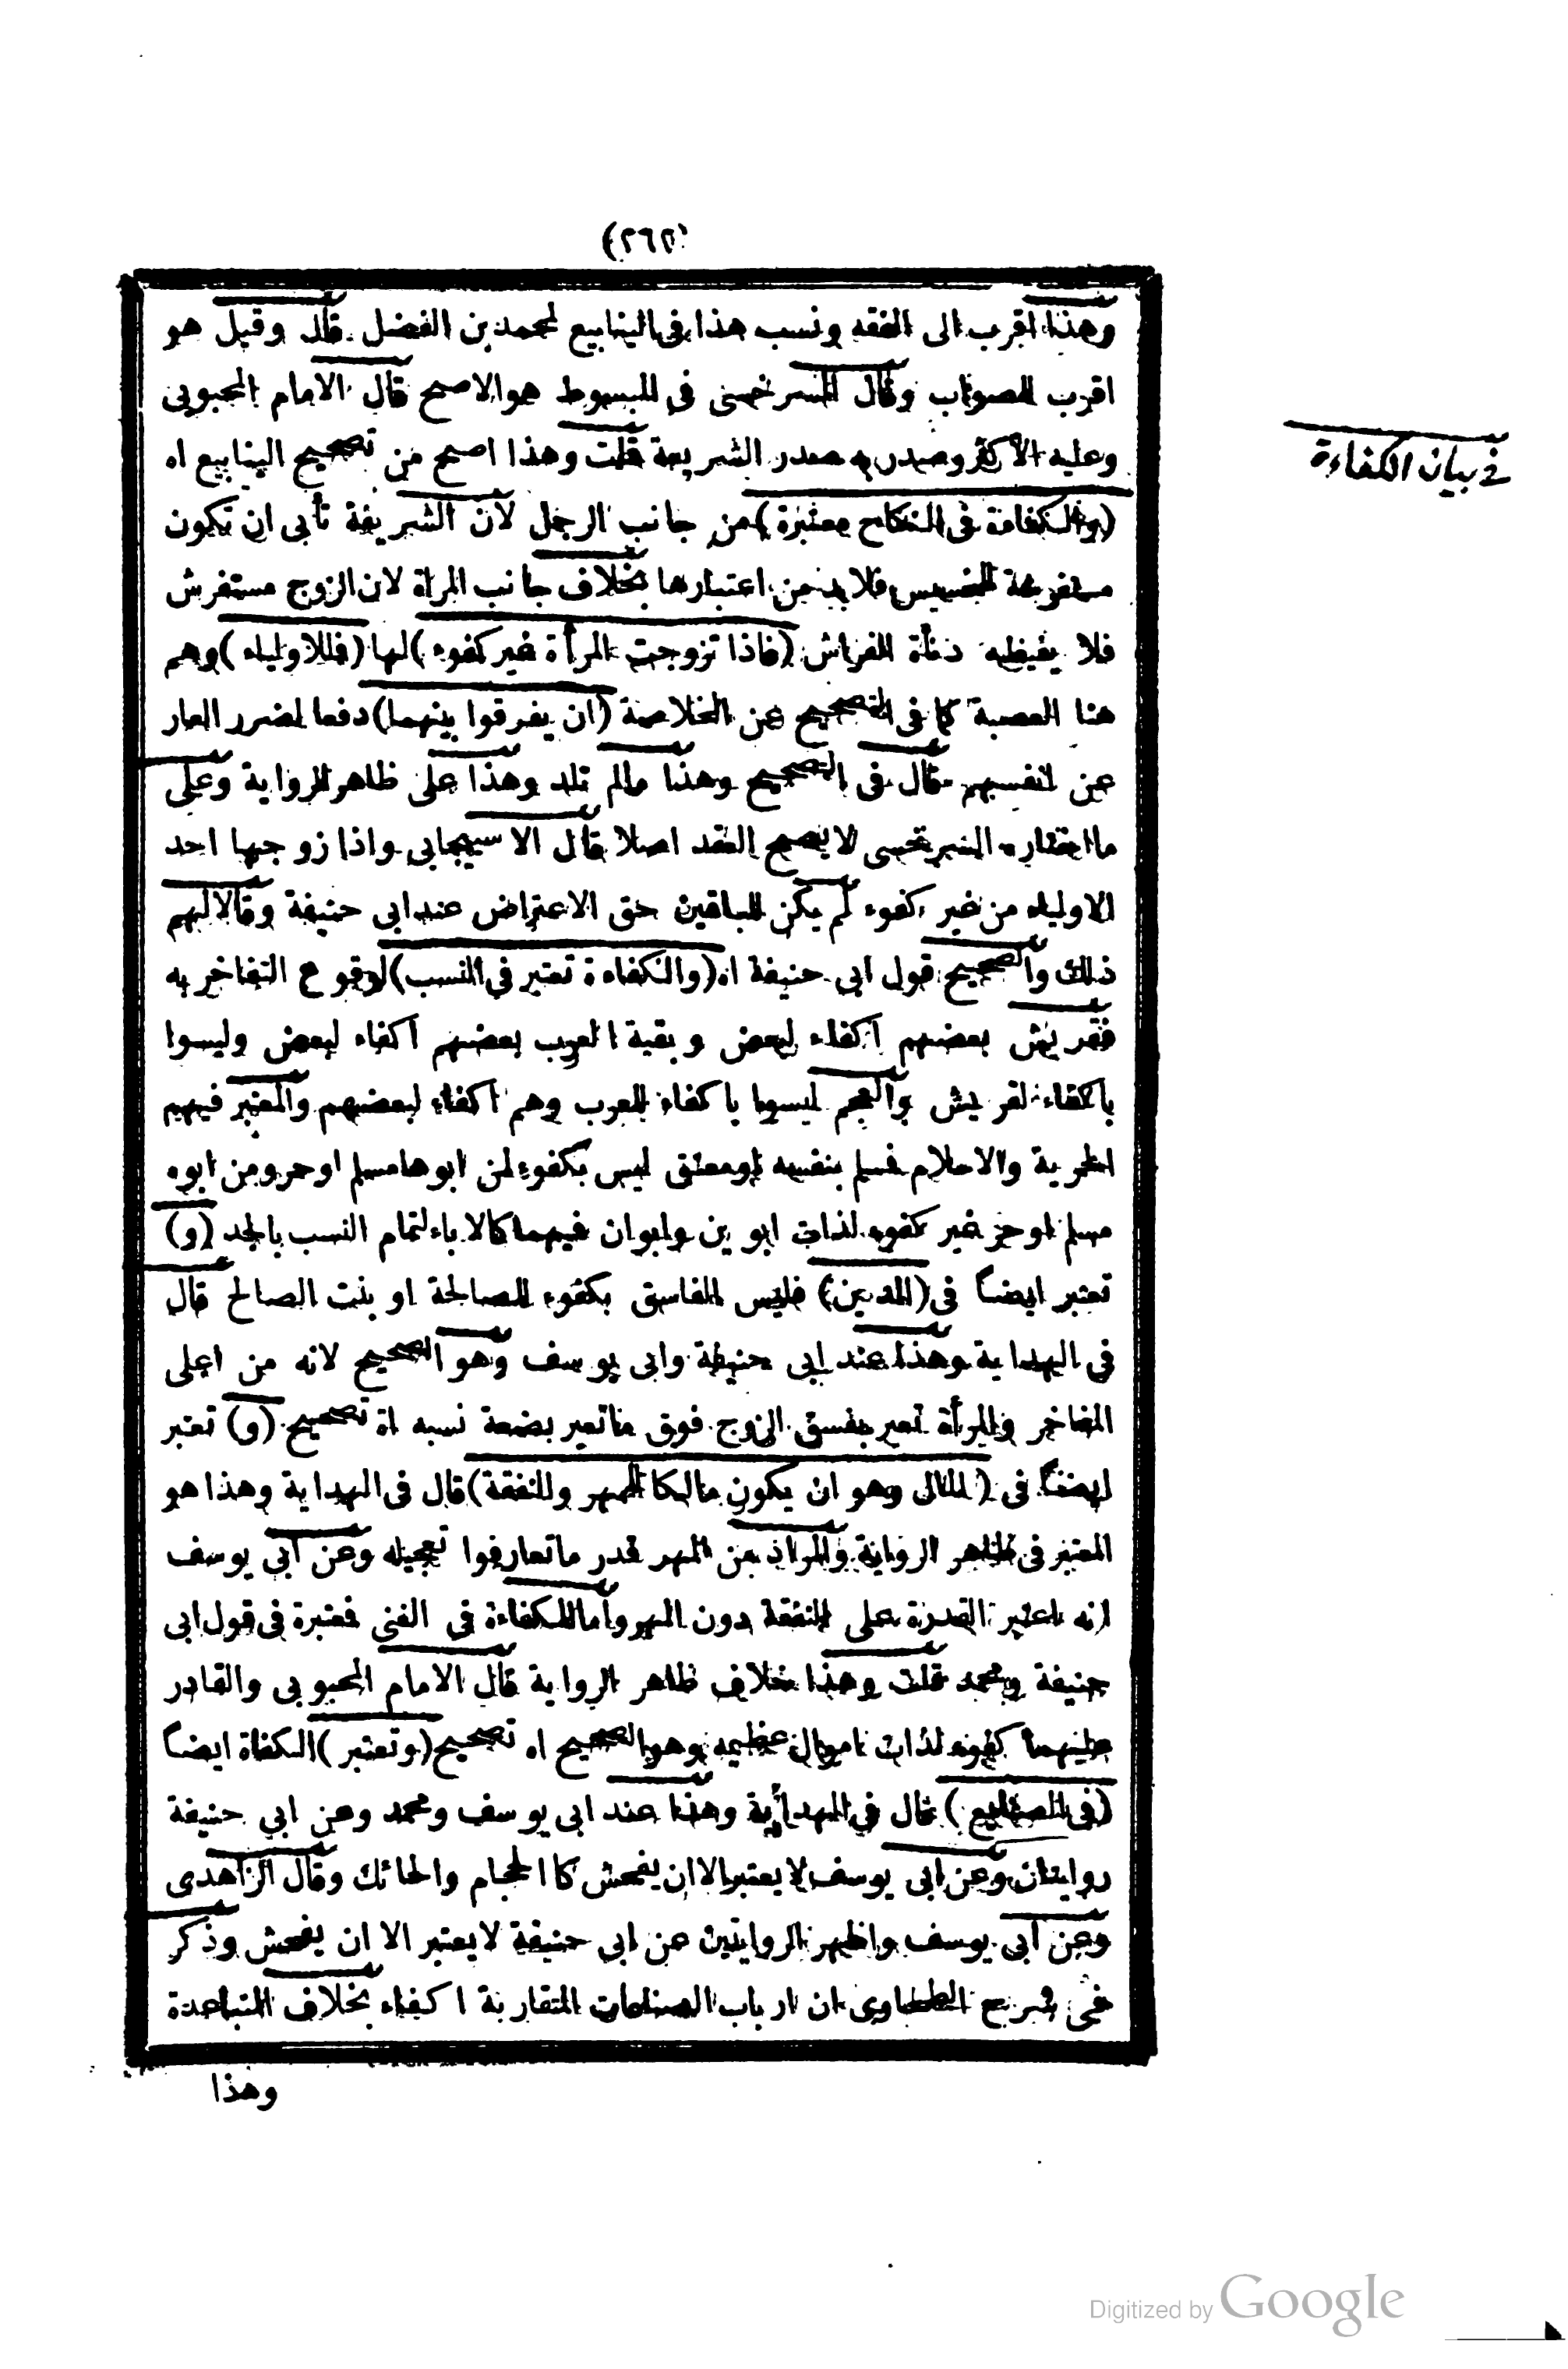 (٢٦٥)
وهذا اقرب الى الفقه ونسب هذا فى الينابيع لمحمد بن الفضل قال وقيل هو
اقرب للصواب وقال السرخسى فى المبسوط هو الاصح قال الامام المحبوبى
وعليه الاكثر وصدر به صدر الشريعة قلت وهذا اصح من تصحيح الينابيع اه
(والكفاءة فى النكاح معتبرة) من جانب الرجل لان الشريفة تأبى ان تكون
مستفرشة للخسيس فلا بد من اعتبارها بخلاف جانب المرأة لان الزوج مستفرش
فلا يغيظه دناءة الفراش (فاذا تزوجت المرأة غير كفوء) لها (فللاولياء) وهم
هنا العصبة كما فى التصحيح عن الخلاصة (ان يفرقوا بينهما) دفعا لضرر العار
عن انفسهم قال فى التصحيح وهذا مالم تلد وهذا على ظاهر الرواية وعلى
ما اختاره السرخسى لا يصح العقد اصلا قال الاسبيجابى واذا زوجها احد
الاولياء من غير كفوء لم يكن للباقين حق الاعتراض عند ابى حنيفة وقالا لهم
ذلك والصحيح قول ابى حنيفة اه (والكفاءة تعتبر فى النسب) لوقوع التفاخر به
فقريش بعضهم اكفاء لبعض وبقية العرب بعضهم اكفاء لبعض وليسوا
باكفاء لقريش والعجم ليسوا باكفاء للعرب وهم اكفاء لبعضهم والمعتبر فيهم
الحرية والاسلام فمسلم بنفسه او معتق ليس بكفوء لمن ابوها مسلم او حر ومن ابوه
مسلم او حر غير كفوء لذات ابوين وابوان فيهما كالاباء لتمام النسب بالجد (و)
تعتبر ايضاً فى (الدين) فليس الفاسق بكفوء للصالحة او بنت الصالح قال
فى الهداية وهذا عند ابى حنيفة وابى يوسف وهو الصحيح لانه من اعلى
المفاخر والمرأة تعير بفسق الزوج فوق ما تعير بضعة نسبه اه تصحيح (و) تعتبر
ايضاً فى (المال وهو ان يكون مالكا للمهر والنفقة) قال فى الهداية وهذا هو
المعتبر فى ظاهر الرواية والمراد من المهر قدر ما تعارفوا تعجيله وعن ابى يوسف
انه اعتبر القدرة على النفقة دون المهر واما الكفاءة فى الغنى فمعتبرة فى قول ابى
حنيفة ومحمد قلت وهذا خلاف ظاهر الرواية قال الامام المحبوبى والقادر
عليهما كفوء لذات اموال عظيمه وهو الصحيح اه تصحيح (وتعتبر) الكفاة ايضاً
(فى الصنايع) قال فى الهداية وهذا عند ابى يوسف ومحمد وعن ابى حنيفة
روايتان وعن ابى يوسف لا يعتبر الا ان يفحش كا الحجام والحائك وقال الزاهدى
وعن ابى يوسف واظهر الروايتين عن ابى حنيفة لا يعتبر الا ان يفحش وذكر
فى شرح الطحاوى ان ارباب الصناعات المتقاربة اكفاء بخلاف المتباعدة
وهذا
فى بيان الكفاءة
Digitized by Google